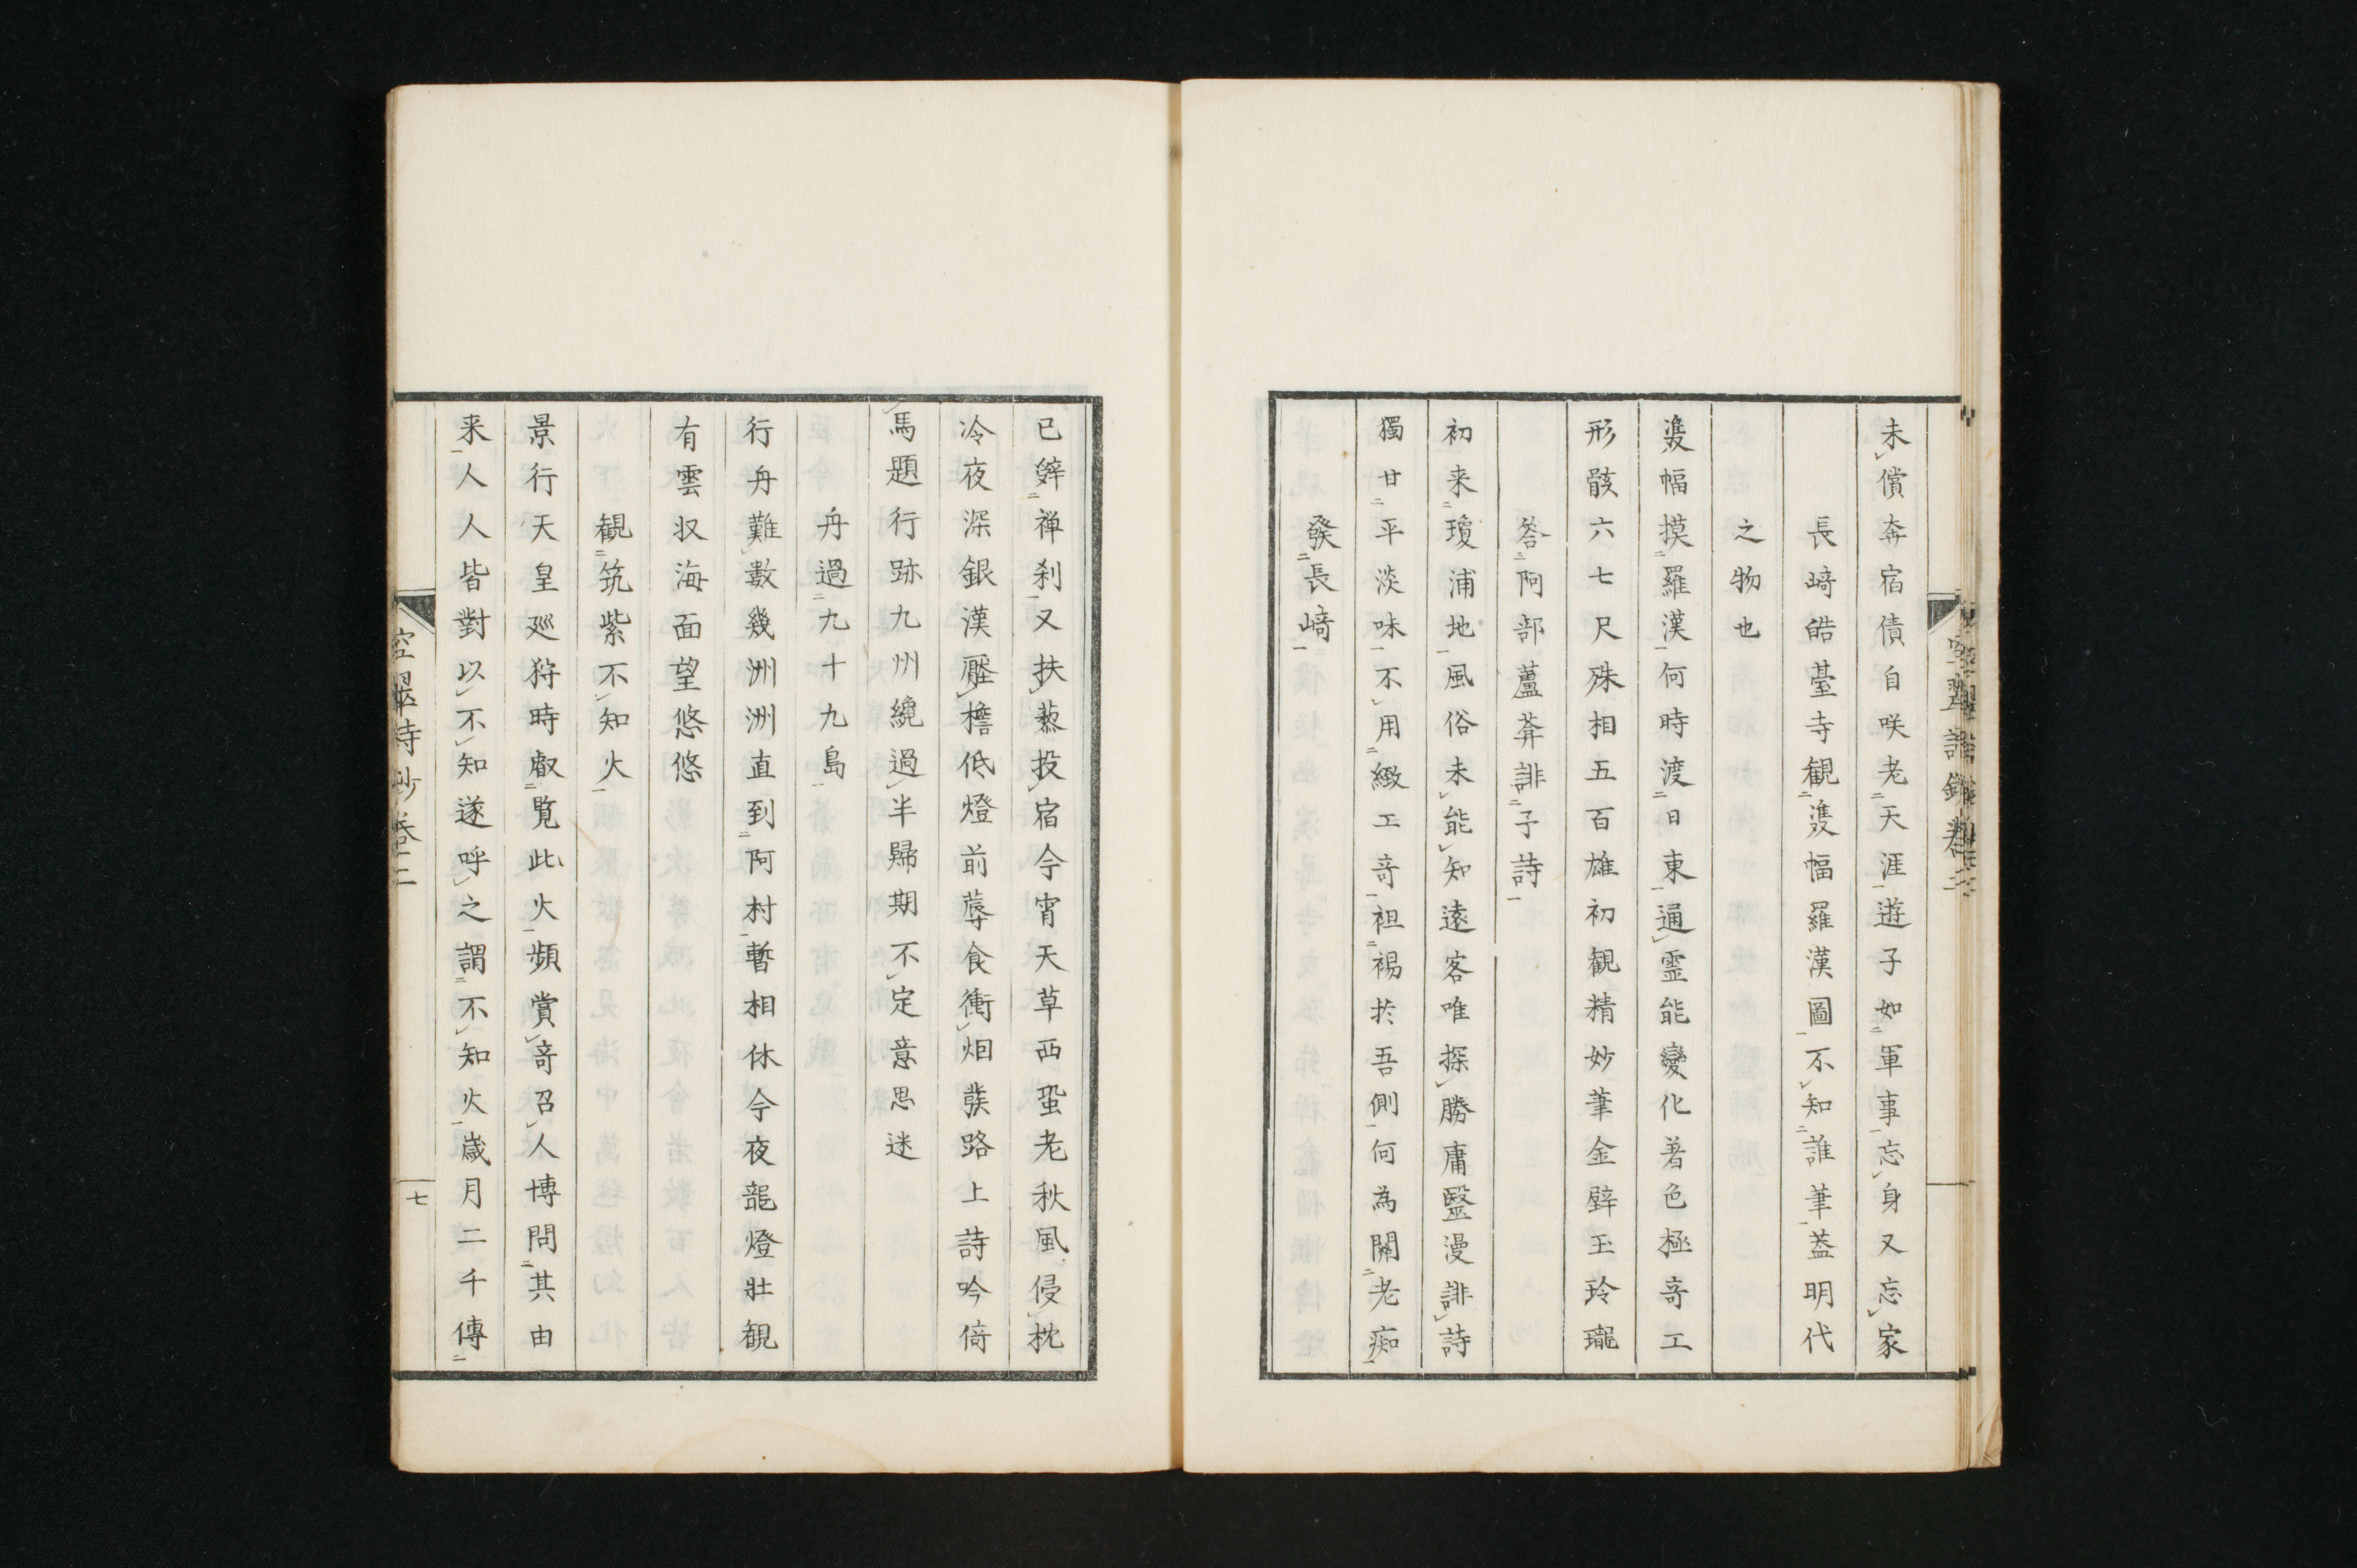 未償奔宿債自咲老天涯遊子如軍事忘身又忘家
長﨑皓臺寺観㕠幅羅漢圖不知誰筆葢明代
之物也
㕠幅摸羅漢何時渡日東通霊能變化著色極竒工
形骸六七尺殊相五百雄初観精妙筆金壁玉玲瓏
答阿部蘆葊誹子詩
初来瓊浦地風俗未能知遠客唯探勝庸毉漫誹詩
獨甘平淡味不用緻工竒袒裼於吾側何為闘老痴
發長﨑
已辤禅刹又扶藜投宿今宵天草西蛩老秋風侵枕
冷夜深銀漢壓檐低燈前蓐食衝烟發路上詩吟倚
馬題行跡九州纔過半歸期不定意思迷
舟過九十九島
行舟難數幾洲洲直到阿村暫相休今夜龍燈壯観
有雲収海面望悠悠
観筑紫不知火
景行天皇廵狩時叡覧此火頻賞竒召人博問其由
来人人皆對以不知遂呼之謂不知火歳月二千傳
空翠詩鈔卷二
七